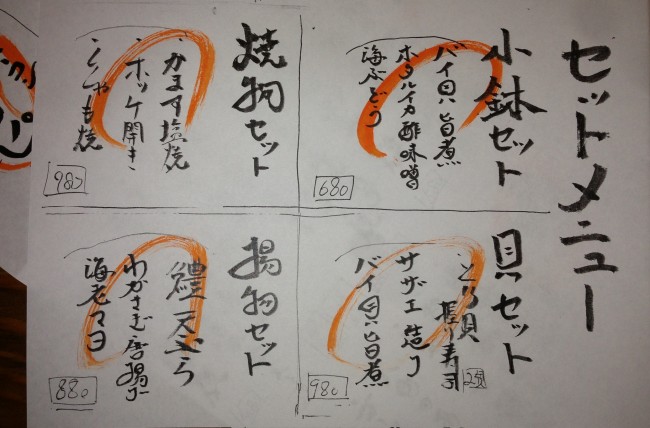 セットメニュー
小鉢セット
バイ貝旨煮
ホタルイカ酢味噌
海ぶどう
680
焼物セット
・かます塩焼
・ホッケ開き
・ししゃも焼
980
貝セット
とり貝
握り寿司
2貫
サザエ造り
バイ貝旨煮
980
揚物セット
鱧天ぷら
わかさぎ唐揚げ
海老マヨ
880